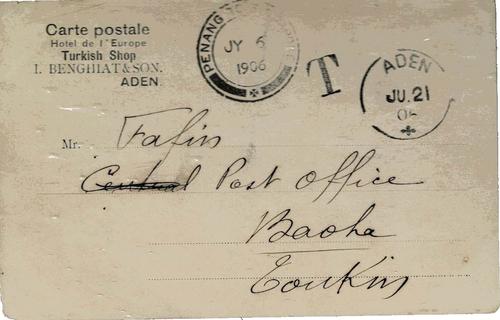 Carte postale
Hotel de l'Europe
Turkish Shop
I. BENGHIAT & SON.
ADEN.
PENANG
JY 6
1906
T
ADEN
JU. 21
06
Mr. Fafin
Central Post Office
Baoha
Tonkin